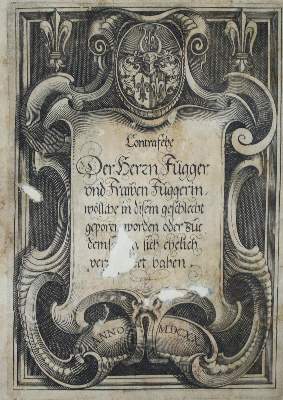 Contrafehe
Der Herrn Fugger
vnd Frawen Fuggerin,
wölliche in disem geschlecht
geporn worden oder zu
dem sich ehelich
haben.
ANNO MDCXX